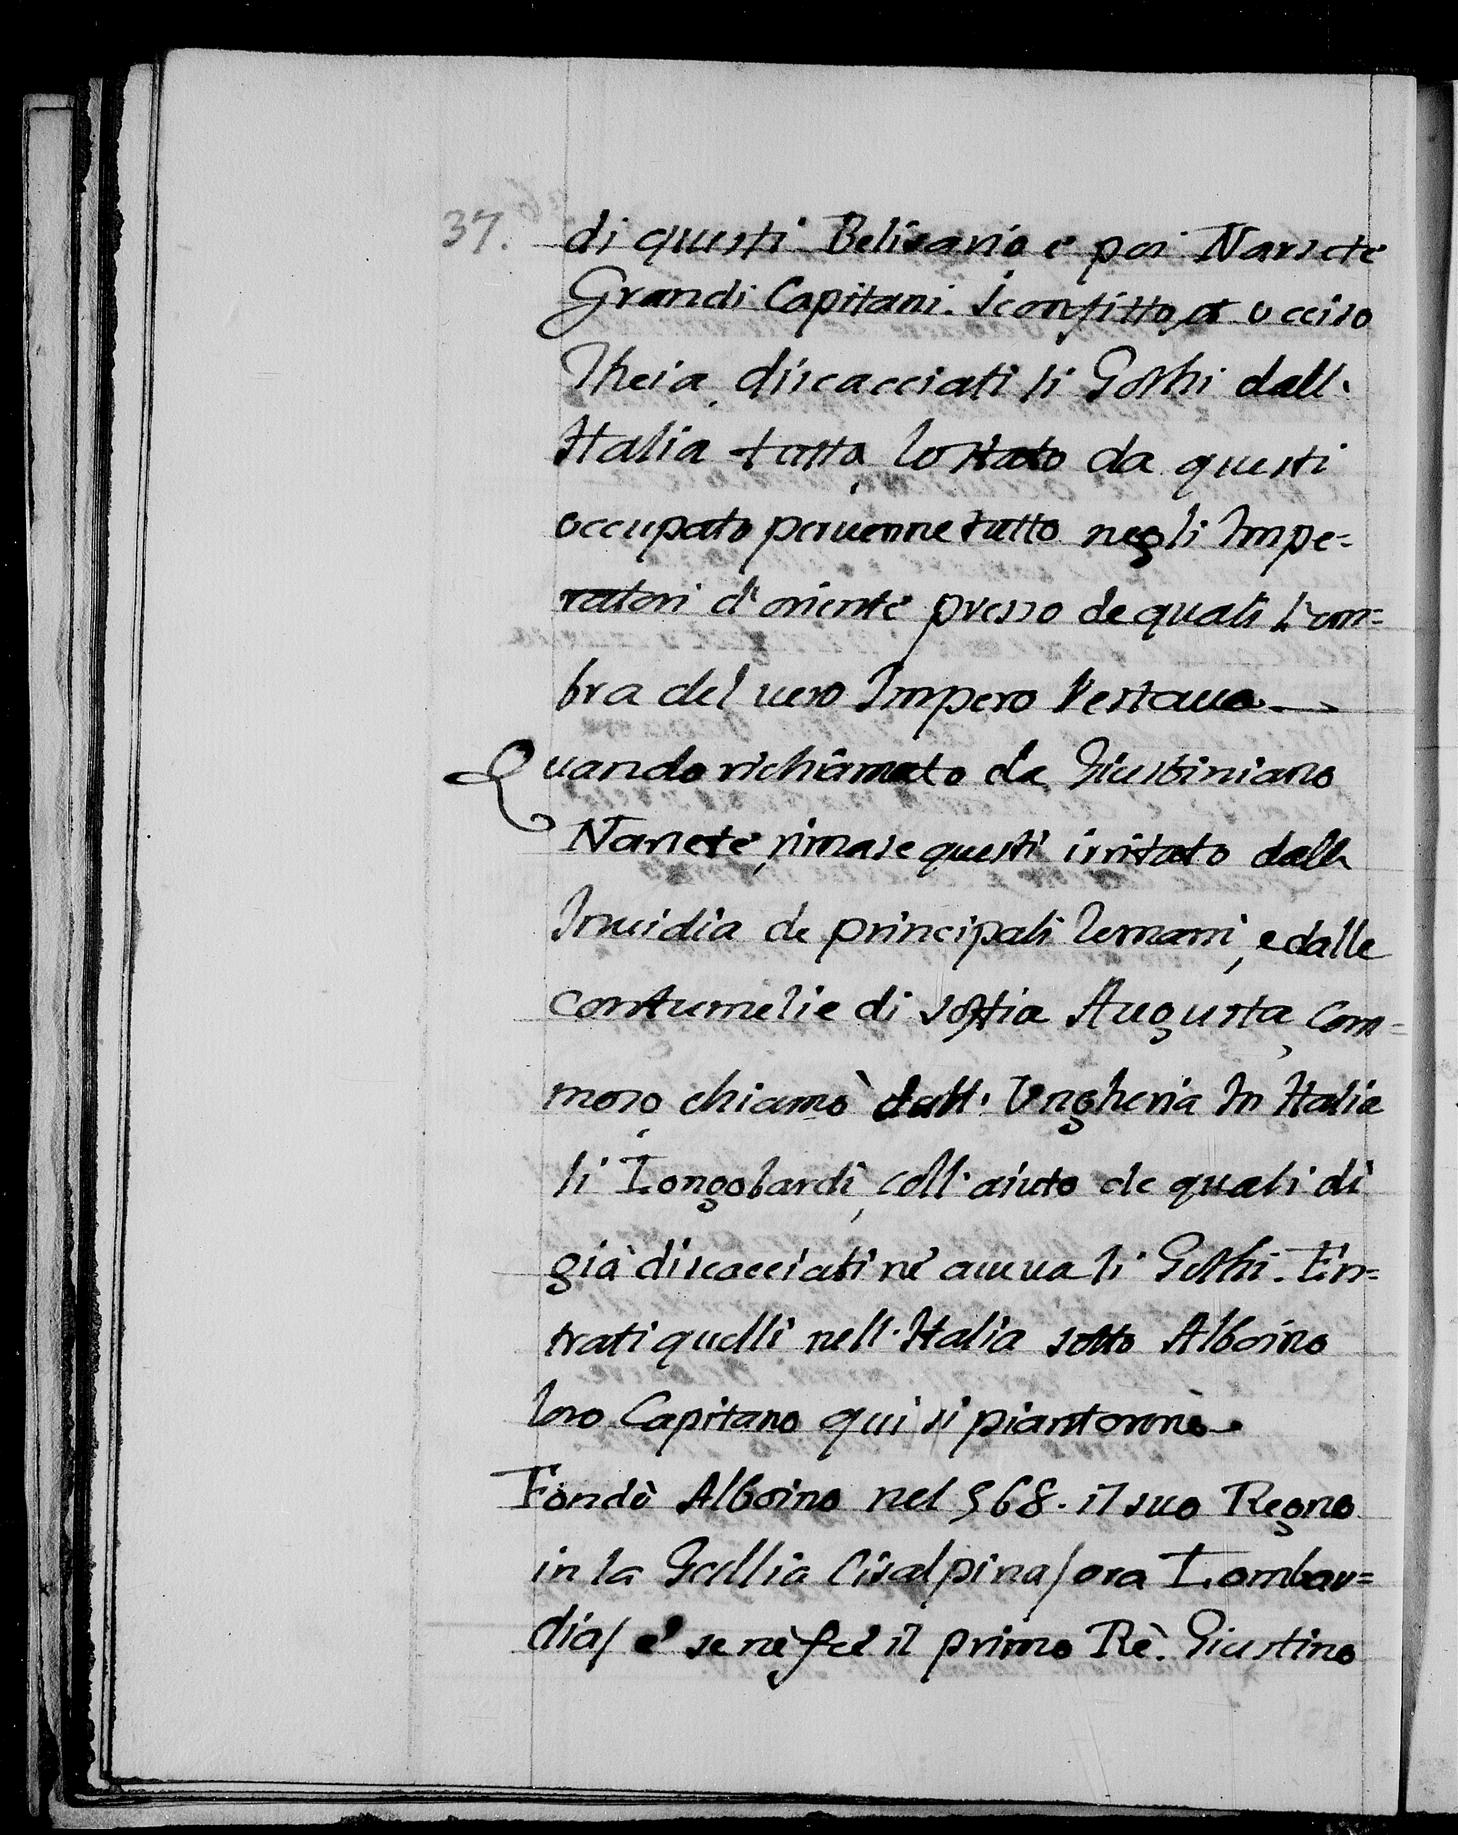 37.
di questi Belisario e poi Narsete
Grandi Capitani. Sconfitto, et ucciso
Theia, discacciati li Gothi dall'
Italia tutto lo stato da questi
occupato peruenne tutto negli Impe=
ratori d'oriente presso de quali l'om=
bra del uero Impero Restaua.
Quando richiamato da Giustiniano
Narsete, rimase questi irritato dalla
Inuidia de principali Romani, e dalle
contumelie di soffia Augusta, Com=
moso, chiamò dall' Ungheria In Italia
li Longobardi, coll' aiuto de quali di
già discacciati nè aueua li Gothi. En=
trati quelli nell' Italia sotto Alboino
loro Capitano qui si piantorono.
Fondò Alboino nel 568. il suo Regno
in la Gallia Cisalpina / ora Lombar=
dia / è se nè feè il primo Rè. Giustino